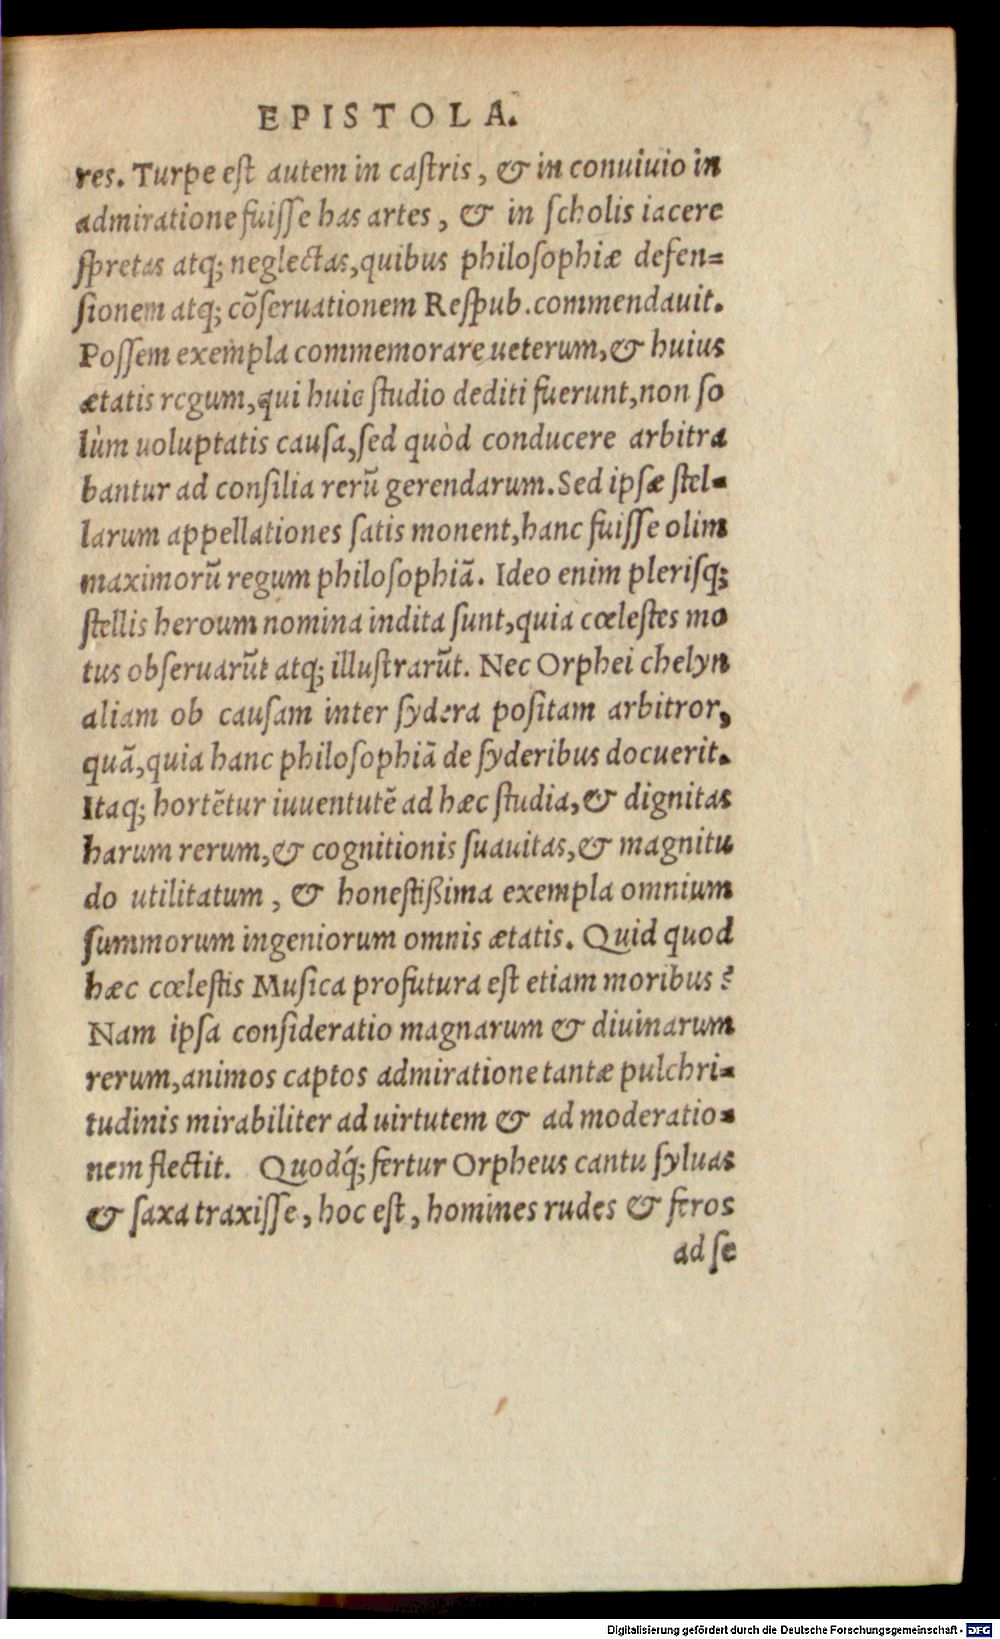 EPISTOLA.
res. Turpe est autem in castris, & in conuiuio in
admiratione fuisse has artes, & in scholis iacere
spretas atq; neglectas, quibus philosophiæ defen=
sionem atq; cõseruationem Respub. commendauit.
Possem exempla commemorare ueterum, & huius
ætatis regum, qui huic studio dediti fuerunt, non so
lùm uoluptatis causa, sed quòd conducere arbitra
bantur ad consilia rerũ gerendarum. Sed ipsæ stel=
larum appellationes satis monent, hanc fuisse olim
maximorũ regum philosophiã. Ideo enim plerisq;
stellis heroum nomina indita sunt, quia cœlestes mo
tus obseruarũt atq; illustrarũt. Nec Orphei chelyn
aliam ob causam inter sydera positam arbitror,
quã, quia hanc philosophiã de syderibus docuerit.
Itaq; hortẽtur iuuentutẽ ad hæc studia, & dignitas
harum rerum, & cognitionis suauitas, & magnitu
do utilitatum, & honestißima exempla omnium
summorum ingeniorum omnis ætatis. Quid quod
hæc cœlestis Musica profutura est etiam moribus?
Nam ipsa consideratio magnarum & diuinarum
rerum, animos captos admiratione tantæ pulchri=
tudinis mirabiliter ad uirtutem & ad moderatio=
nem flectit. Quodq́; fertur Orpheus cantu syluas
& saxa traxisse, hoc est, homines rudes & feros
ad se
Digitalisierung gefördert durch die Deutsche Forschungsgemeinschaft - DFG